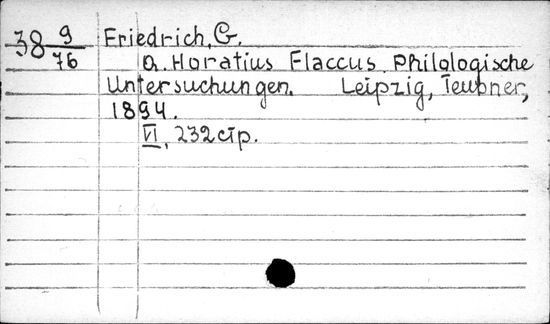 38 9/76 Friedrich, G.
Q. Horatius Flaccus. Philologische
Untersuchungen. Leipzig, Teubner,
1894.
VI, 232 стр.